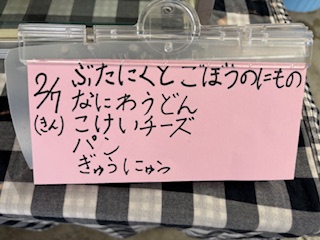 2/7
(きん)
ぶたにくとごぼうのにもの
なにわうどん
こけいチーズ
パン
ぎゅうにゅう